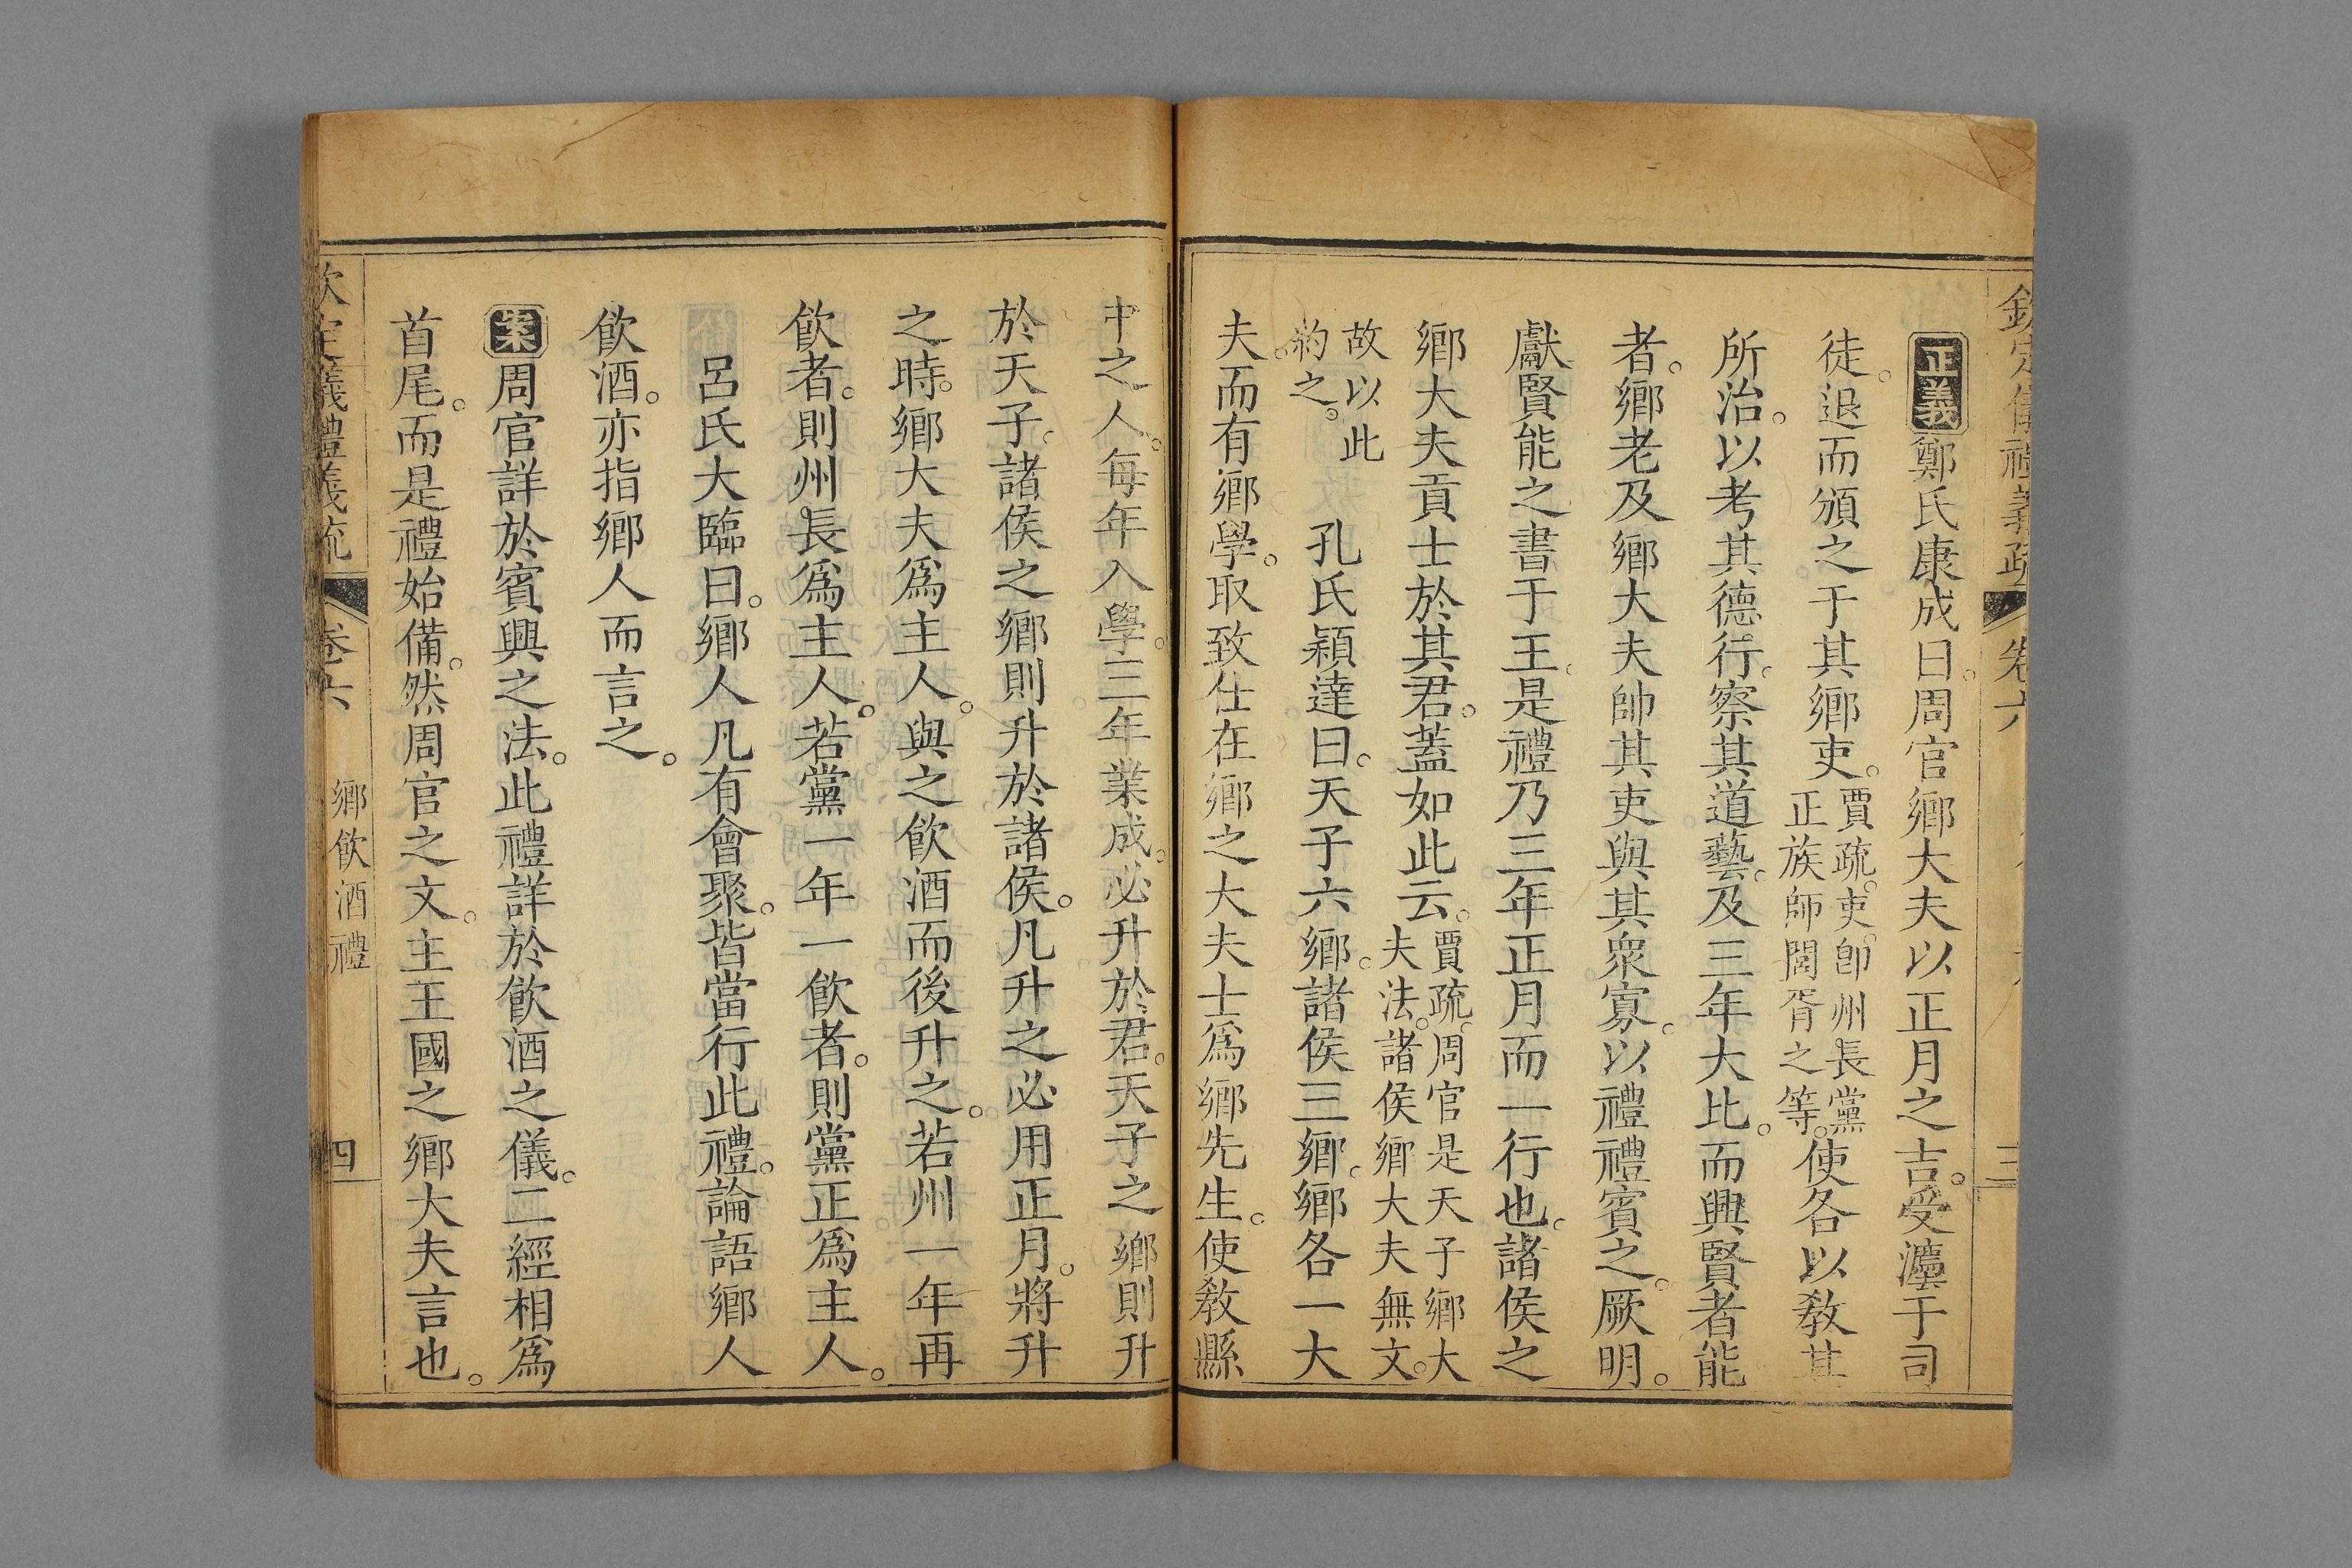 欽定儀禮義疏 卷六 三
正義鄭氏康成曰。周官鄉大夫以正月之吉。受灋于司
徒。退而頒之于其鄉吏。賈疏。吏。卽州長黨正族師閭胥之等。使各以敎其
所治。以考其德行。察其道藝。及三年大比。而興賢者能
者。鄉老及鄉大夫帥其吏與其衆寡。以禮禮賓之。厥明。
獻賢能之書于王。是禮乃三年正月而一行也。諸侯之
鄉大夫貢士於其君。蓋如此云。賈疏。周官是天子鄉大夫法。諸侯鄉大夫無文。
故以此約之。 孔氏穎達曰。天子六鄉。諸侯三鄉。鄉各一大
夫。而有鄉學。取致仕在鄉之大夫士爲鄉先生。使敎縣
中之人。每年入學。三年業成。必升於君。天子之鄉則升
於天子。諸侯之鄉則升於諸侯。凡升之必用正月。將升
之時。鄉大夫爲主人。與之飮酒而後升之。若州一年再
飮者。則州長爲主人。若黨一年一飮者。則黨正爲主人。
呂氏大臨曰。鄉人凡有會聚。皆當行此禮。論語鄉人
飮酒。亦指鄉人而言之。
案周官詳於賓興之法。此禮詳於飮酒之儀。二經相爲
首尾。而是禮始備。然周官之文。主王國之鄉大夫言也。
欽定儀禮義疏 卷六 鄉飮酒禮 四